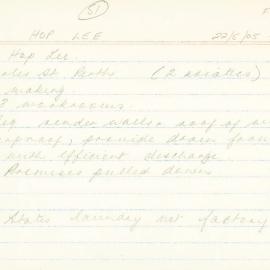 (51) F
HOP LEE 22/5/05
Hop Lee.
St. Perth (2 asiatics)
making.
3 workrooms.
render walls & roof of
provide drain from
with efficient discharge.
Premises pulled down
States laundry not factory